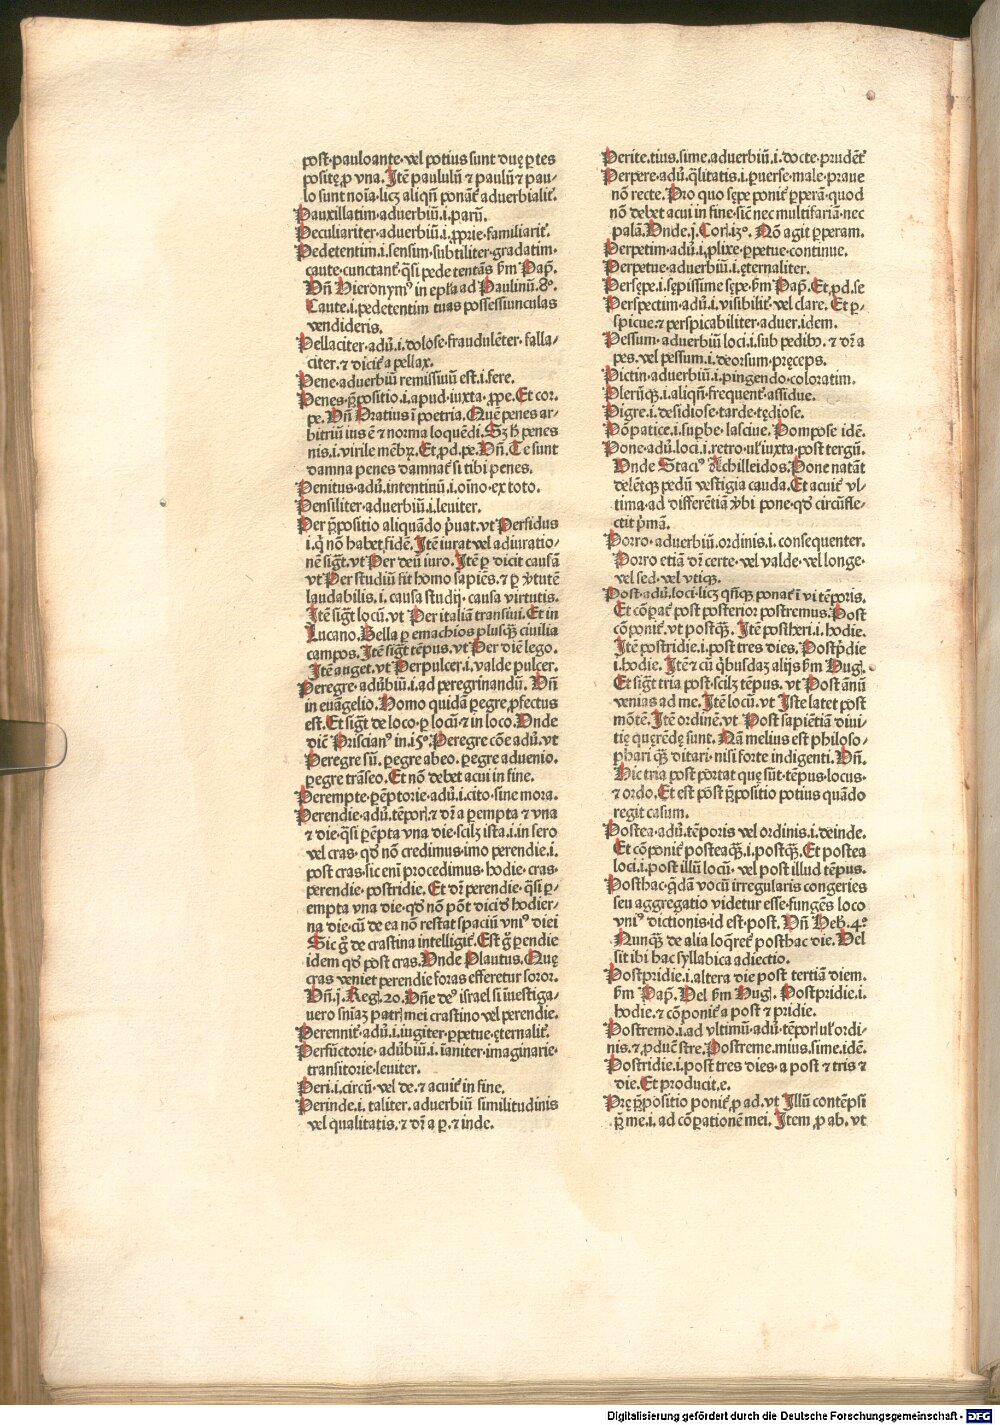 post·pauloante·vel potius sunt duę ꝑtes
positę ꝓ vna. Itē paululū ⁊ paulū ⁊ pau-
lo sunt noīa·licꝫ aliqn̄ ponāt᷑ aduerbialit᷑.
Pauxillatim·aduerbiū.i.parū.
Peculiariter·aduerbiū.i.ꝓprie·familiarit᷑.
Pedetentim.i.sensim·subtiliter·gradatim·
caute·cunctant᷑·q̄si pede tentās ẜm Pap̄.
Vn̄ Hieronymꝰ in epl̄a ad Paulinū.8°.
Caute.i.pedetentim tuas possessiunculas
vendideris.
Pellaciter·adū.i.dolose·fraudulēter·falla-
citer.⁊ dicit᷑ a pellax.
Pene·aduerbiū remissiuū est.i.fere.
Penes·p̄positio.i.apud·iuxta·ꝓpe.Et cor.
pe.Vn̄ Oratius ī poetria.Quē penes ar-
bitriū ius ē ⁊ norma loquēdi.Sꝫ h̄ penes
nis.i.virile mēbꝝ.Et ꝓd.pe.Vn̄.Te sunt
damna penes damnat᷑ si tibi penes.
Penitus·adū.intentinū.i.oīno·ex toto.
Pensiliter·aduerbiū.i.leuiter.
Per p̄positio aliquādo p̄uat.vt Perfidus
i.q̇ nō habet fidē.Itē iurat vel adiuratio-
nē sigt̄.vt Per deū iuro.Itē ꝑ dicit causā
vt Per studiū fit homo sapiēs.⁊ ꝑ v̄tutē
laudabilis.i.causa studij·causa virtutis.
Itē sigt̄ locū.vt Per italiā transiui.Et in
Lucano.Bella ꝑ emachios plusq̄ꝫ ciuilia
campos.Itē sigt̄ tēpus.vt Per diē lego.
Itē auget.vt Perpulcer.i.valde pulcer.
Peregre·adūbiū.i.ad peregrinandū.Vn̄
in euāgelio.Homo quidā ꝑegre ꝓfectus
est.Et sigt̄ de loco·ꝑ locū·⁊ in loco.Vnde
dic̄ Priscianꝰ in.15°.Peregre cōe adū.vt
Peregre sū.ꝑegre abeo.ꝑegre aduenio.
ꝑegre trāseo.Et nō debet acui in fine.
Perempte·ꝑēptorie·adū.i.cito·sine mora.
Perendie·adū.tēpor᷑.⁊ dr̄ a ꝑempta ⁊ vna
⁊ die·q̄si ꝑēpta vna die·scilꝫ ista.i.in sero
vel cras·qd̄ nō credimus·imo perendie.i.
post cras·sic enī procedimus·hodie·cras·
perendie·postridie.Et dr̄ perendie·q̄si ꝑ-
empta vna die·qd̄ nō pōt dici d̄ hodier-
na die·cū de ea nō restat spaciū vniꝰ diei
Sic g̊ de crastina intelligit᷑.Est g̊ ꝑendie
idem qd̄ post cras.Vnde Plautus.Quę
cras veniet perendie foras efferetur soror.
Vn̄.j.Reg᷑.20.Dn̄e deꝰ israel si īuestiga-
uero sn̄iaꝫ patr᷑ mei crastino vel perendie.
Perennit᷑·adū.i.iugiter·ꝑpetue·ęternalit᷑.
Perfūctorie·adūbiū.i.ianiter·imaginarie·
transitorie·leuiter.
Peri.i.circū·vel de.⁊ acuit᷑ in fine.
Perinde.i.taliter.aduerbiū similitudinis
vel qualitatis.⁊ dr̄ a ꝑ.⁊ inde.
Perite.tius.sime.aduerbiū.i.docte·prudēt᷑
Perpere·adū.q̄litatis.i.ꝑuerse·male·praue
nō recte.Pro quo sępe ponit᷑ ꝑperā·quod
nō debet acui in fine·sic̄ nec multifariā·nec
palā.Vnde.j.Cor᷑.13°.Nō agit ꝑperam.
Perpetim·adū.i.ꝓlixe·ꝑpetue·continue.
Perpetue·aduerbiū.i.ęternaliter.
Persępe.i.sępissime sępe·ẜm Pap̄.Et ꝓd.se
Perspectim·adū.i.visibilit᷑·vel clare.Et ꝑ-
spicue.⁊ perspicabiliter·aduer.idem.
Pessum·aduerbiū loci.i.sub pedibꝰ.⁊ dr̄ a
pes.vel pessum.i.deorsum·pręceps.
Pictin·aduerbiū.i.pingendo·coloratim.
Plerūqꝫ.i.aliqn̄·frequent᷑·assidue.
Pigre.i.desidiose·tarde·tędiose.
Pōpatice.i.suꝑbe·lasciue.Pompose idē.
Pone·adū.loci.i.retro·ul̓ iuxta·post tergū.
Vnde Staciꝰ Achilleidos.Pone natāt
delēt qꝫ pedū vestigia cauda.Et acuit᷑ vl-
tima·ad differētiā v̄bi pone·qd̄ circūfle-
ctit p̄mā.
Porro·aduerbiū.ordinis.i.consequenter.
Porro etiā dr̄ certe·vel valde·vel longe·
vel sed·vel vtiqꝫ.
Post·adū.loci·licꝫ qn̄qꝫ ponat᷑ ī vi tēporis.
Et cōꝑat᷑ post posterior postremus.Post
cōponit᷑.vt postq̄ꝫ.Itē postheri.i.hodie.
Itē postridie.i.post tres dies.Postp̄die
i.hodie.Itē ⁊ cū q̇busdaꝫ alijs ẜm Hug᷑.
Et sigt̄ tria post·scilꝫ tēpus.vt Post ānū
venias ad me.Itē locū.vt Iste latet post
mōtē.Itē ordinē.vt Post sapiētiā diui-
tię quęrēdę sunt.Nā melius est philoso-
phari q̄ꝫ ditari·nisi forte indigenti.Vn̄.
Hic tria post portat quę sūt·tēpus·locus·
⁊ ordo.Et est post p̄positio potius quādo
regit casum.
Postea·adū.tēporis vel ordinis.i.deinde.
Et cōponit᷑ posteaq̄ꝫ.i.postq̄ꝫ.Et postea
loci.i.post illū locū·vel post illud tēpus.
Posthac·q̄dā vocū irregularis congeries
seu aggregatio videtur esse·fungēs loco
vniꝰ dictionis·id est·post.Vn̄ Heb̄.4°
Nunq̄ꝫ de alia loq̄ret᷑ posthac die.Vel
sit ibi hac syllabica adiectio.
Postpridie.i.altera die post tertiā diem.
ẜm Pap̄.Vel ẜm Hug᷑.Postpridie.i.
hodie.⁊ cōponit᷑ a post ⁊ pridie.
Postremo.i.ad vltimū·adū.tēpor᷑ ul̓ ordi-
nis.⁊ ꝓdu ē stre.Postreme.mius.sime.idē.
Postridie.i.post tres dies·a post ⁊ tris ⁊
die.Et producit.e.
Prę p̄positio ponit᷑ ꝓ ad.vt Illū contēpsi
p̄ me.i.ad cōꝑationē mei.Item ꝓ ab.vt
Digitalisierung gefördert durch die Deutsche Forschungsgemeinschaft - DFG